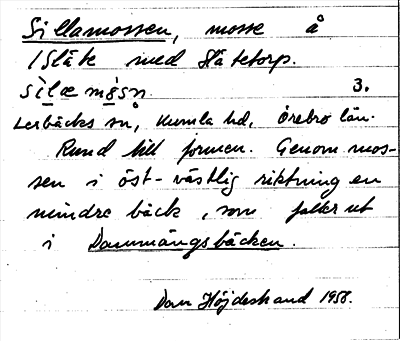 Sillamossen, mosse å
Islätt med Hätetorp.
sìlæ må̀sn. 3.
Lerbäcks sn, Kumla hd, Örebro län.
Rund till formen. Genom mos-
sen i öst-västlig riktning en
mindre bäck, som faller ut
i Dammängsbäcken.
Dan Höjdestrand 1958.